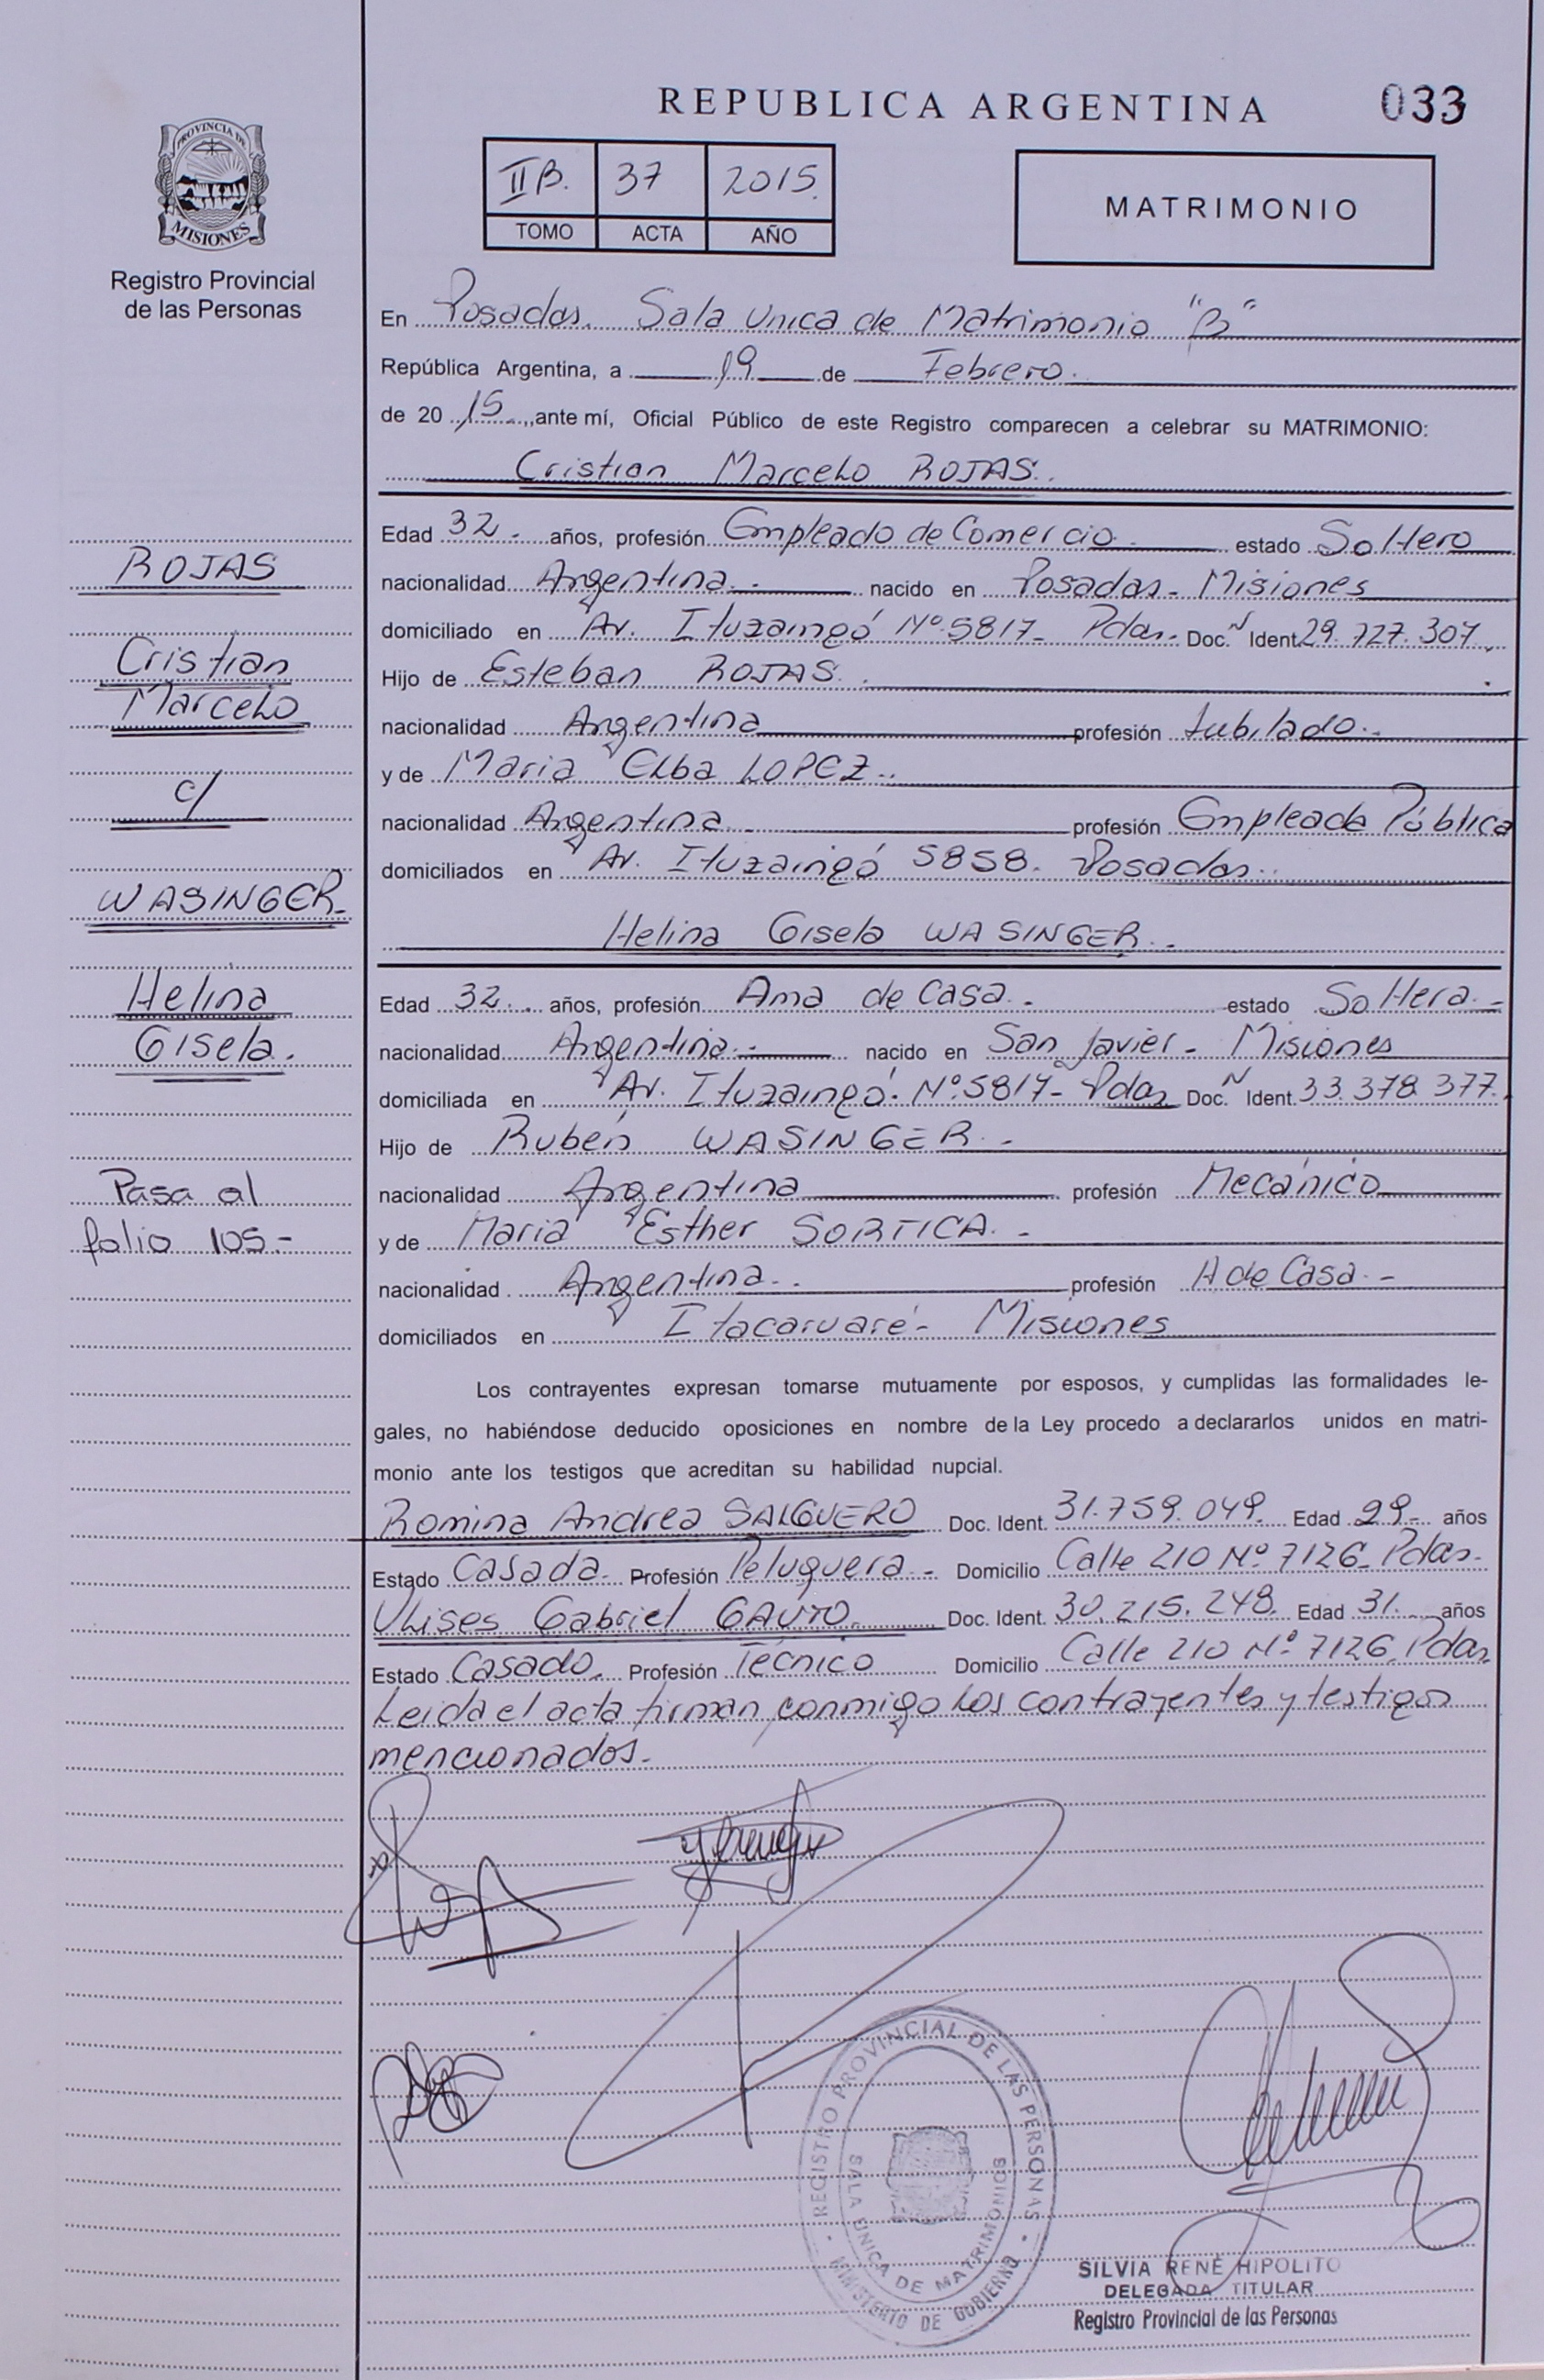 REPUBLICA ARGENTINA 033
PROVINCIA DE
MISIONES
Registro Provincial
de las Personas
IIB. 37 2015.
TOMO ACTA AÑO
MATRIMONIO
En Posadas. Sala Unica de Matrimonio "B"
República Argentina, a 19 de Febrero.
de 20 15 , ante mí, Oficial Público de este Registro comparecen a celebrar su MATRIMONIO:
Cristian Marcelo ROJAS.
Edad 32. años, profesión Empleado de Comercio estado Soltero
nacionalidad Argentina nacido en Posadas - Misiones
domiciliado en Av. Ituzaingó Nº 5817 - Pdas. Doc. N Ident. 29.727.307
Hijo de Esteban ROJAS.
nacionalidad Argentina profesión Jubilado.
y de Maria Elba LOPEZ.
nacionalidad Argentina profesión Empleada Pública
domiciliados en Av. Ituzaingó 5858. Posadas.
Helina Gisela WASINGER.
Edad 32. años, profesión Ama de Casa. estado Soltera.
nacionalidad Argentina nacido en San Javier - Misiones
domiciliada en Av. Ituzaingó. Nº 5817 - Pdas Doc. N Ident. 33.378.377.
Hijo de Rubén WASINGER.
nacionalidad Argentina profesión Mecánico
y de Maria Esther SORTICA.
nacionalidad Argentina. profesión A de Casa.
domiciliados en Itacaruaré - Misiones
ROJAS
Cristian
Marcelo
c/
WASINGER
Helina
Gisela.
Pasa al
folio 105.-
Los contrayentes expresan tomarse mutuamente por esposos, y cumplidas las formalidades le-
gales, no habiéndose deducido oposiciones en nombre de la Ley procedo a declararlos unidos en matri-
monio ante los testigos que acreditan su habilidad nupcial.
Romina Andrea SALGUERO Doc. Ident. 31.759.049. Edad 29 años
Estado Casada. Profesión Peluquera - Domicilio Calle 210 Nº 7126 - Pdas.
Ulises Gabriel GAUTO. Doc. Ident. 30.215.248. Edad 31. años
Estado Casado. Profesión Técnico Domicilio Calle 210 Nº 7126. Pdas.
Leida el acta firman conmigo los contrayentes y testigos
mencionados.-
REGISTRO PROVINCIAL DE LAS PERSONAS
SALA UNICA DE MATRIMONIOS
MINISTERIO DE GOBIERNO
SILVIA RENÉ HIPOLITO
DELEGADA TITULAR
Registro Provincial de las Personas